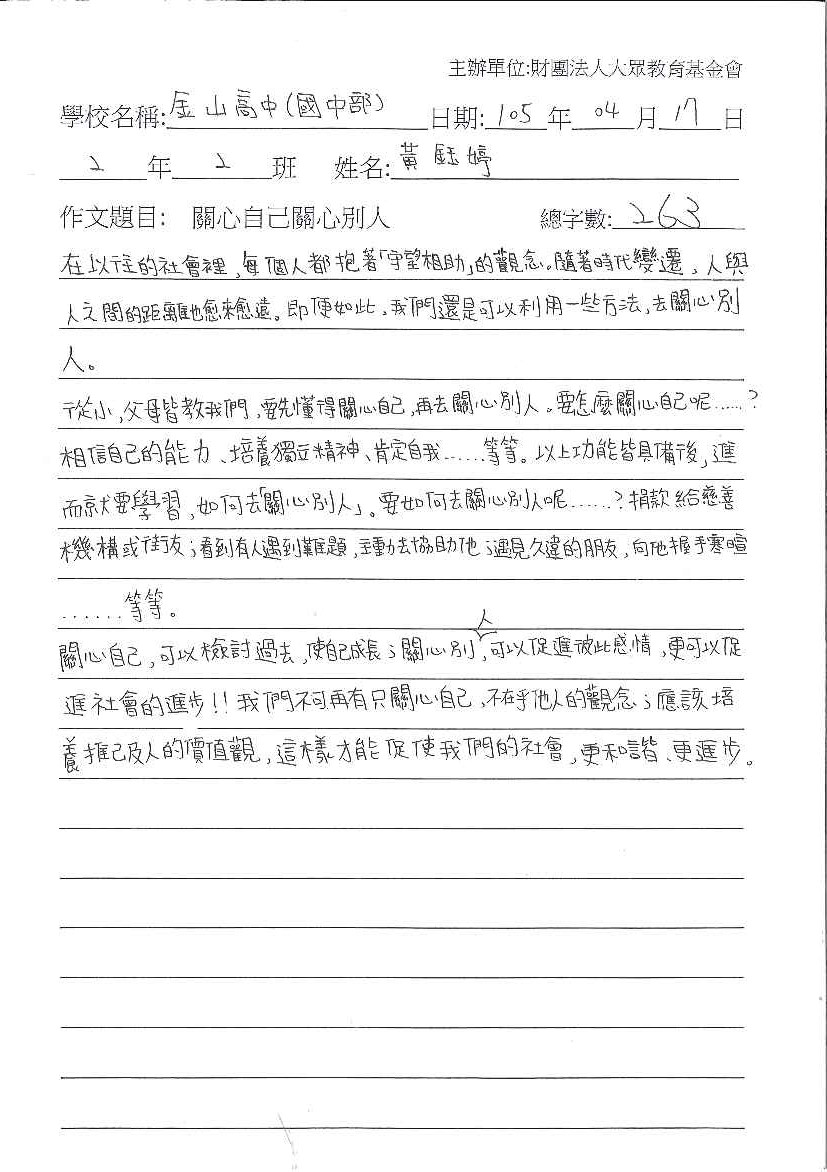 主辦單位:財團法人大眾教育基金會
學校名稱:金山高中(國中部) 日期:105年04月17日
2年2班 姓名:黃鈺婷
作文題目: 關心自己關心別人 總字數:263
在以往的社會裡,每個人都抱著「守望相助」的觀念。隨著時代變遷,人與
人之間的距離也愈來愈遠。即便如此,我們還是可以利用一些方法,去關心別
人。
從小,父母皆教我們,要先懂得關心自己,再去關心別人。要怎麼關心自己呢……?
相信自己的能力、培養獨立精神、肯定自我……等等。以上功能皆具備後,進
而就要學習,如何去「關心別人」。要如何去關心別人呢……?捐款給慈善
機構或街友;看到有人遇到難題,主動去協助他;遇見久違的朋友,向他握手寒暄
……等等。
關心自己,可以檢討過去,使自己成長;關心別人,可以促進彼此感情,更可以促
進社會的進步!!我們不可再有只關心自己,不在乎他人的觀念;應該培
養推己及人的價值觀,這樣才能促使我們的社會,更和諧、更進步。